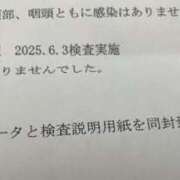 部、咽頭ともに感染はありませ
2025.6.3検査実施
りませんでした。
ータと検査説明用紙を同封